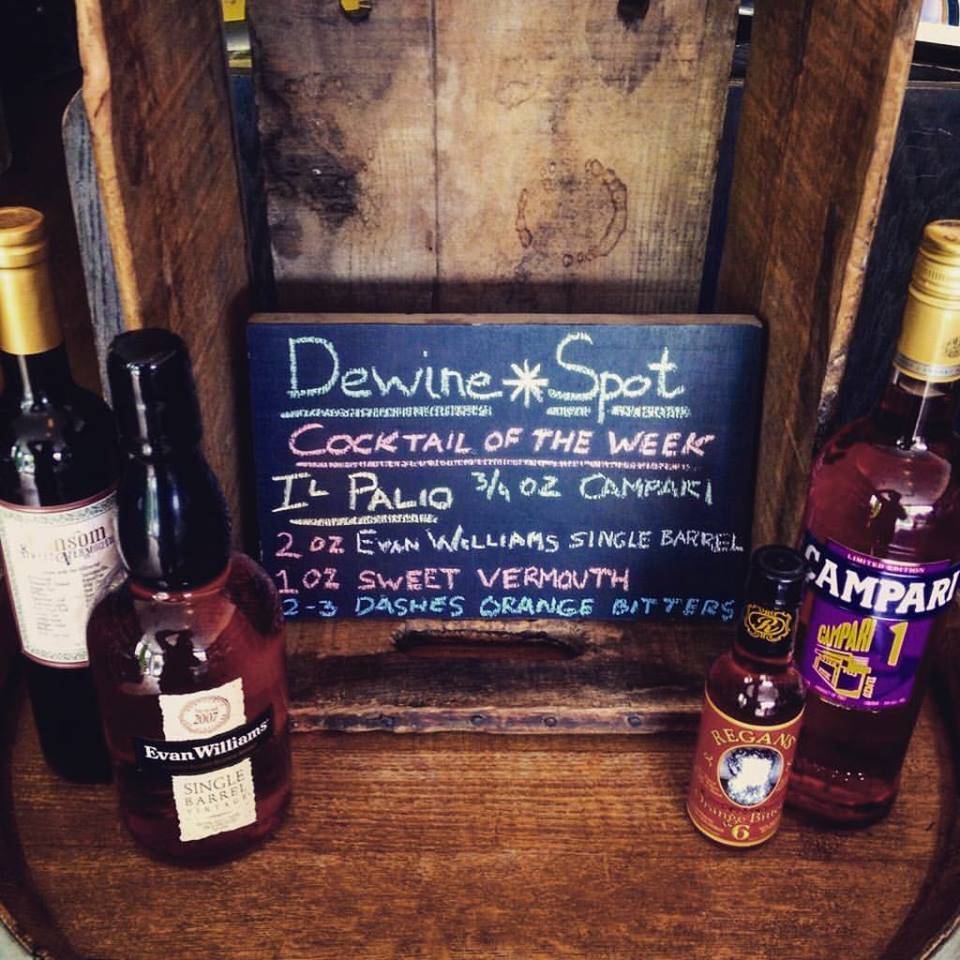 Dewine * Spot
COCKTAIL OF THE WEEK
IL PALIO 3/4 OZ CAMPARI
2 OZ EVAN WILLIAMS SINGLE BARREL
1 OZ SWEET VERMOUTH
2-3 DASHES ORANGE BITTERS
2007
Evan Williams
SINGLE
BARREL
VINTAGE
REGANS'
Orange Bitters
No 6
LIMITED EDITION
CAMPARI
CAMPARI 1